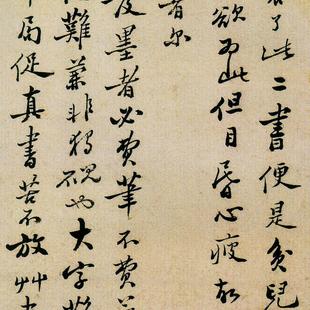 了此二書便是貧兒
欲為此但目昏心疲故
者尔
墨者必費筆不費
難兼非獨硯也大字難
局促真書苦不放艸書